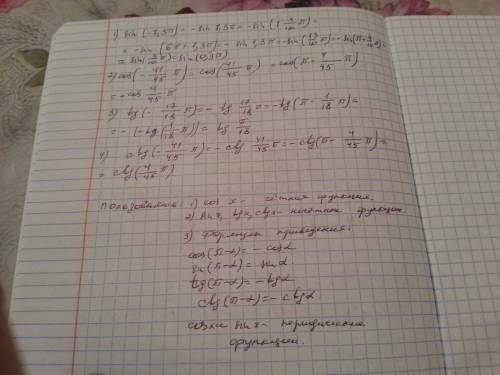 1) sin(-7,3π) = -sin 7,3π = -sin(7 3/10 π) =
= -sin(6π + 1,3π) = -sin 1,3π = -sin(13/10 π) = -sin(π + 3/10 π) =
= sin(3/10 π) = sin(0,3π)
2) cos(-41/45 π) = cos(41/45 π) = cos(π - 4/45 π)
= -cos 4/45 π
3) tg(-17/18 π) = -tg 17/18 π = -tg(π - 1/18 π) =
= -(-tg(1/18 π)) = tg π/18
4) ctg(-41/45 π) = -ctg 41/45 π = -ctg(π - 4/45 π) =
= ctg(4/45 π)
Пользовались: 1) cos x - чётная функция.
2) sin x, tg x, ctg x - нечётные функции
3) Формулы приведения:
cos(π-α) = -cos α
sin(π-α) = sin α
tg(π-α) = -tg α
ctg(π-α) = -ctg α
cos x и sin x - периодические
функции.